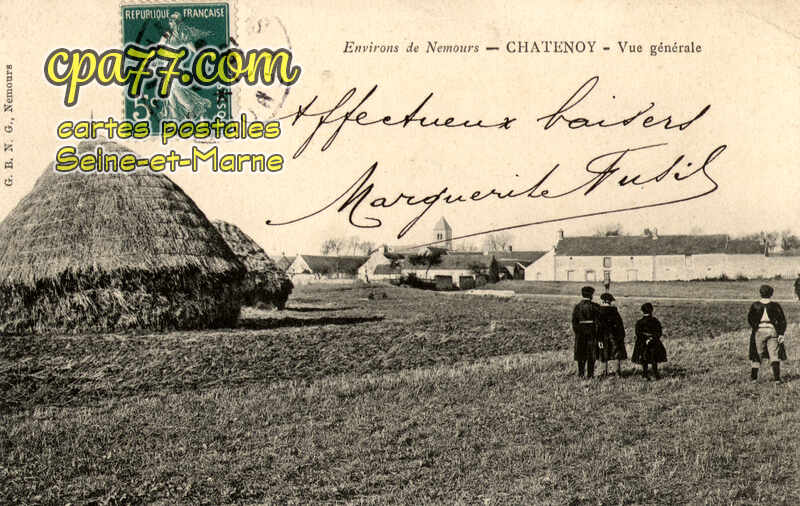 REPUBLIQUE FRANÇAISE
cpa77.com
cartes postales
Seine-et-Marne
Environs de Nemours — CHATENOY - Vue générale
Affectueux baisers
Marguerite Fusil
G. B. N. G., Nemours